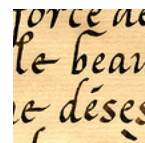 force de
le beau
e déses